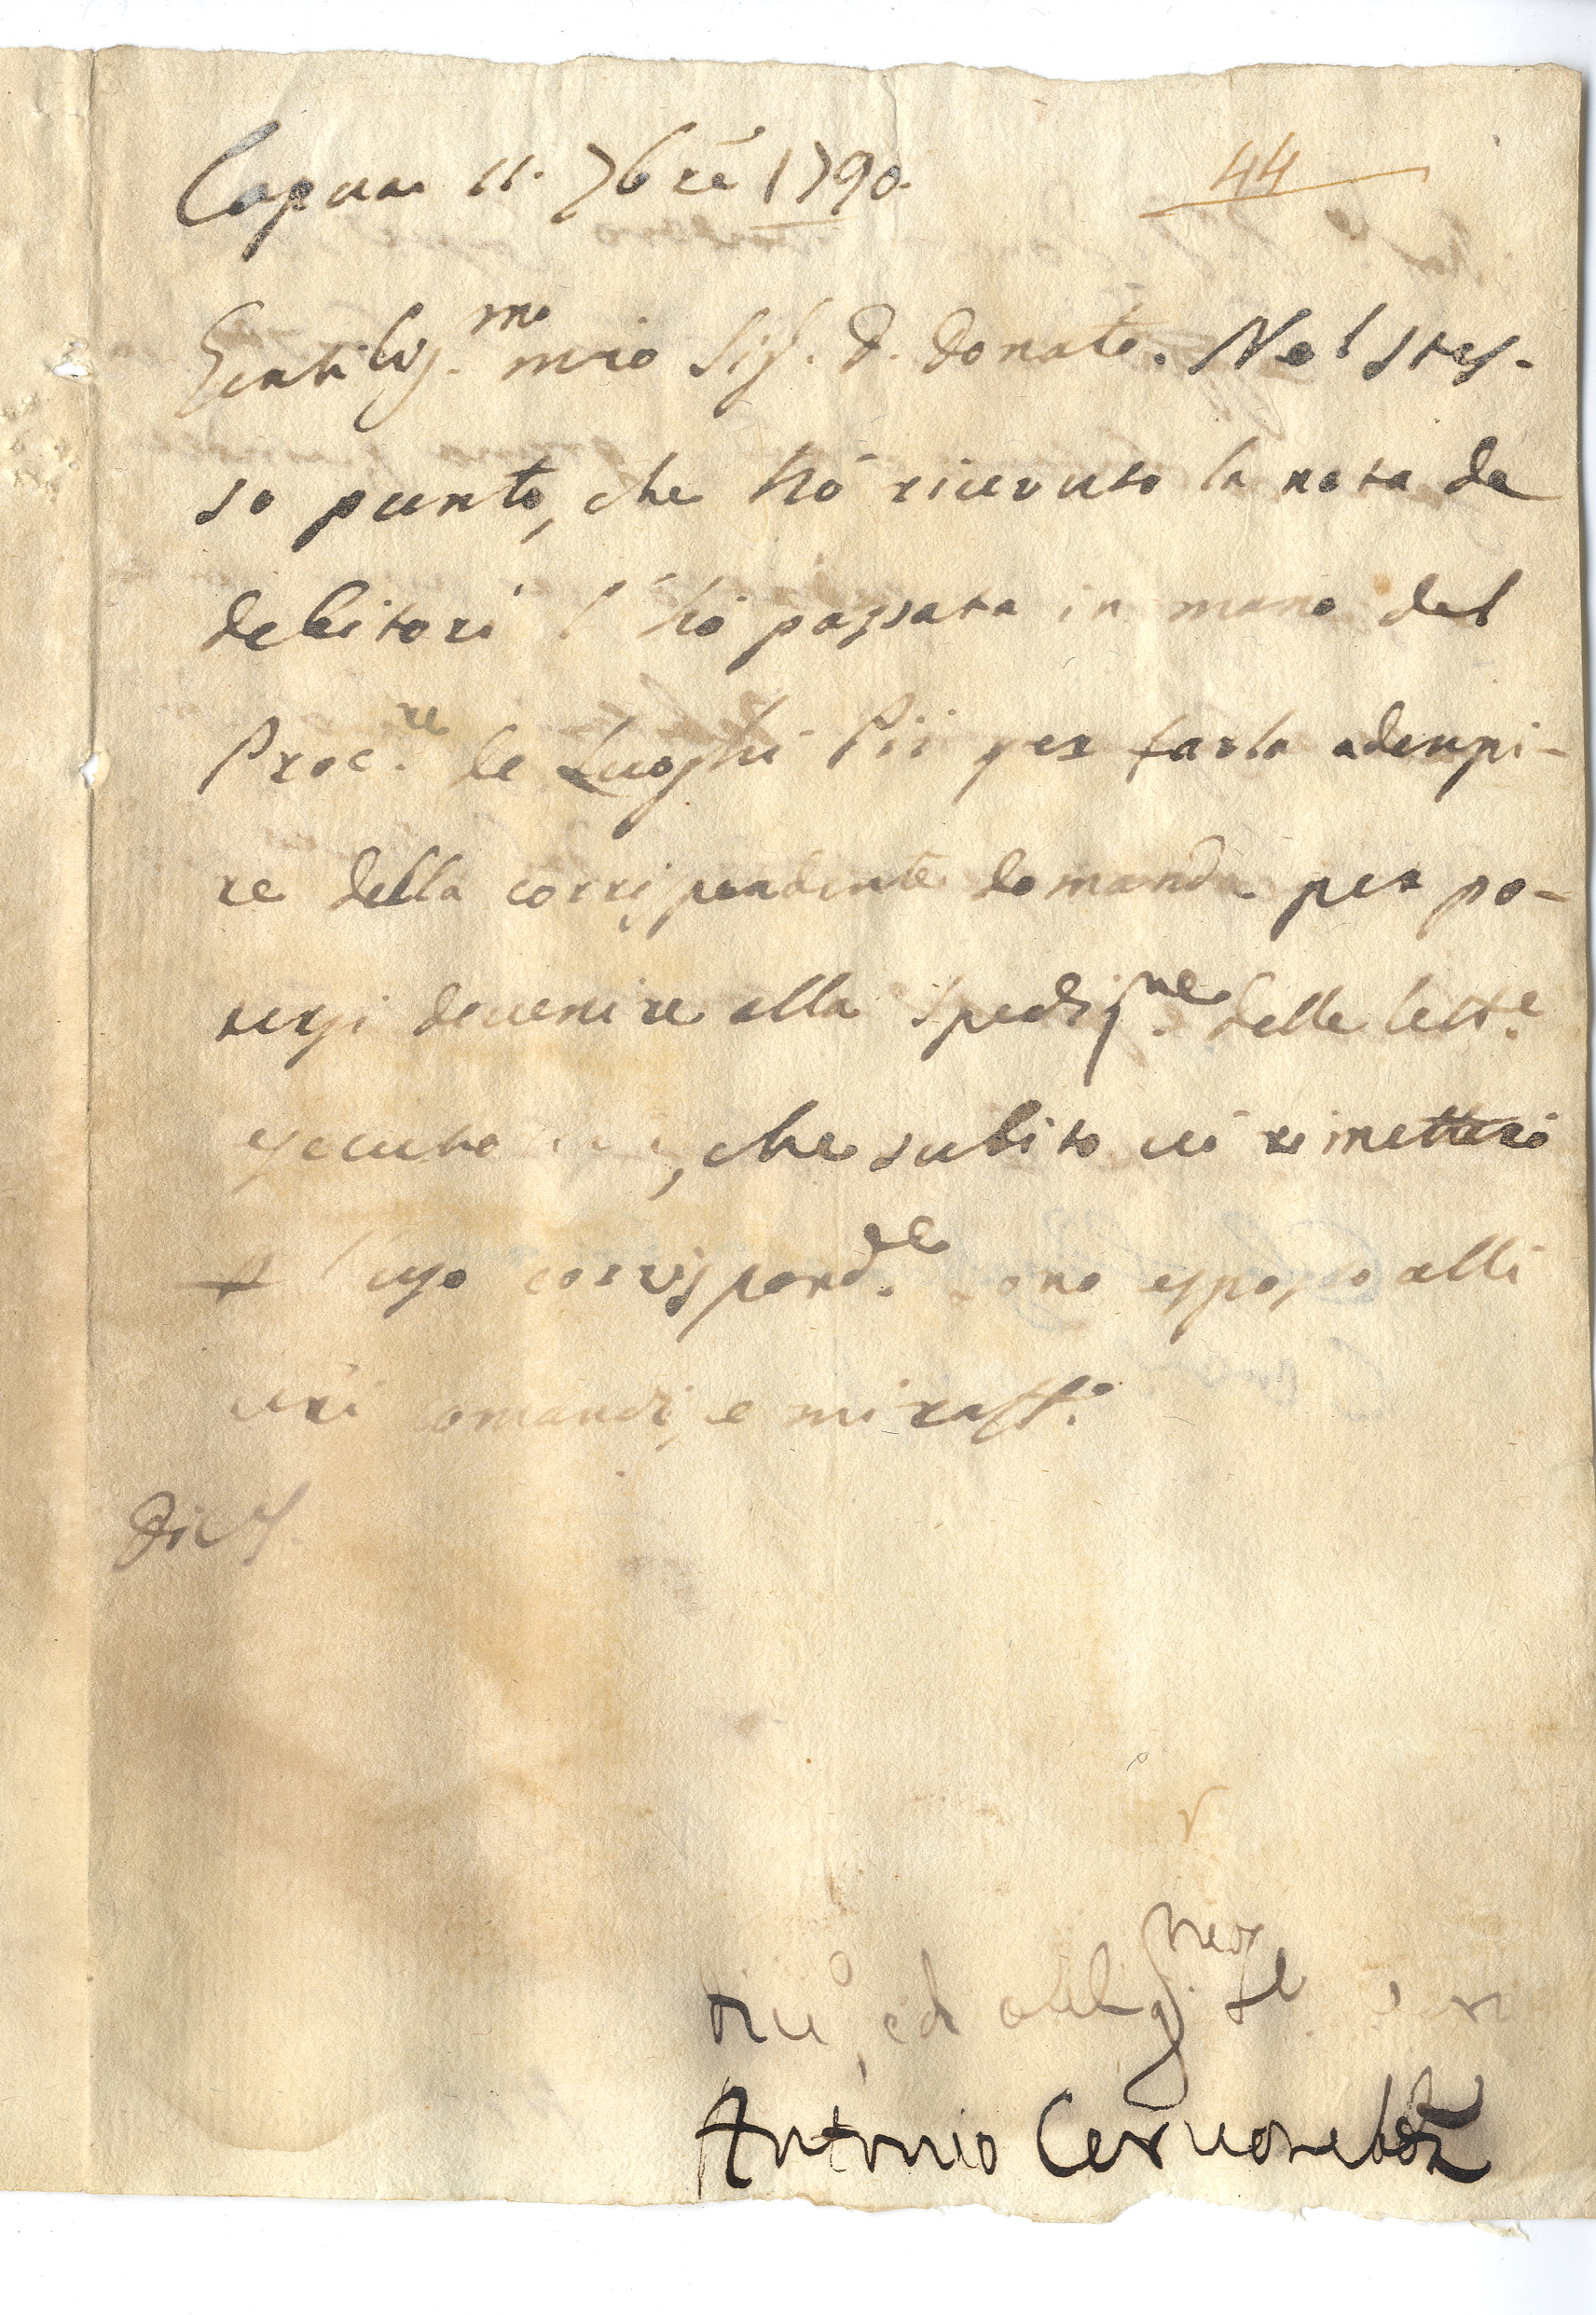 Capua 11. 7bre 1790.
44
Gentiliss.mo mio Sig.r D. Donato. Nel stes-
so punto, che hò ricevuto la nota de
debitori l'hò passata in mano del
Proc.re de Luoghi Pii per farla adempi-
re della corrispondente domanda per po-
tersi devenire alla spediz.ne delle lett.e
che subito vi rimetterò
p l'uso corrispond.te Sono esposto alli
vri comandi, e mi raff.o
ed obblig.mo
Antonio